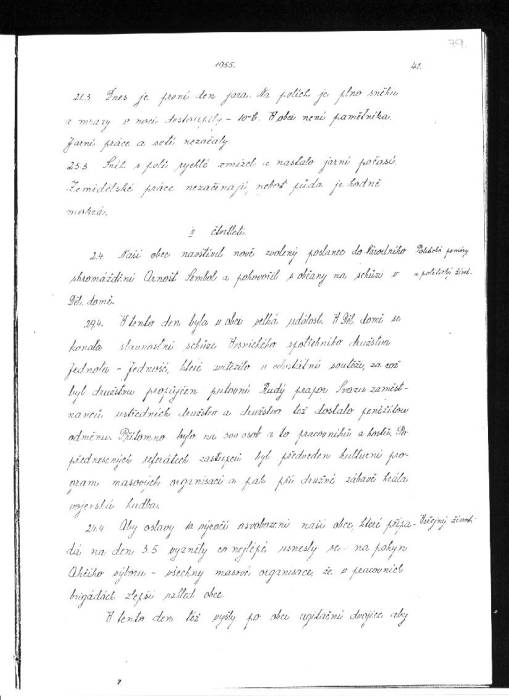 79.
1955.
41.
21.3 Dnes je první den jara. Na polích je plno sněhu
a mrazy v noci dostoupily - 10°C. V obci není pamětníka.
Jarní práce a setí nezačaly
25.3 Sníh s polí rychle zmizel a nastalo jarní počasí.
Zemědělské práce nezačínají, neboť půda je hodně
mokrá.
II čtvrtletí.
2.4. Naši obec navštívil nově zvolený poslanec do Národního
shromáždění Arnošt Sembol a pohovořil s občany na schůzi v
Děl. domě.
Politické poměry
a politický život.
29.4. V tento den byla v obci velká událost. V Děl. domě se
konala slavnostní schůze Vesnického spotřebního družstva
Jednota - Jednosč, které zvítězilo v soutěži, za což
byl družstvu propůjčen putovní Rudý prapor Svazu zaměst-
nanců ústředních družstev a družstvo též dostalo peněžitou
odměnu. Přítomno bylo na 300 osob a to pracovníků a hostů. Po
přednesených referátech zástupců byl předveden kulturní pro-
gram masových organisací a pak při družné zábavě hrála
vojenská hudba.
24.4 Aby oslavy 10 výročí osvobození naší obce, které připa-
dá na den 3.5 vyzněly co nejlépe, usnesly se - na pokyn
Akčního výboru - všechny masové organisace, že v pracovních
brigádách zlepší vzhled obce.
Veřejný život.
V tento den též vyšly po obci agitační dvojice aby